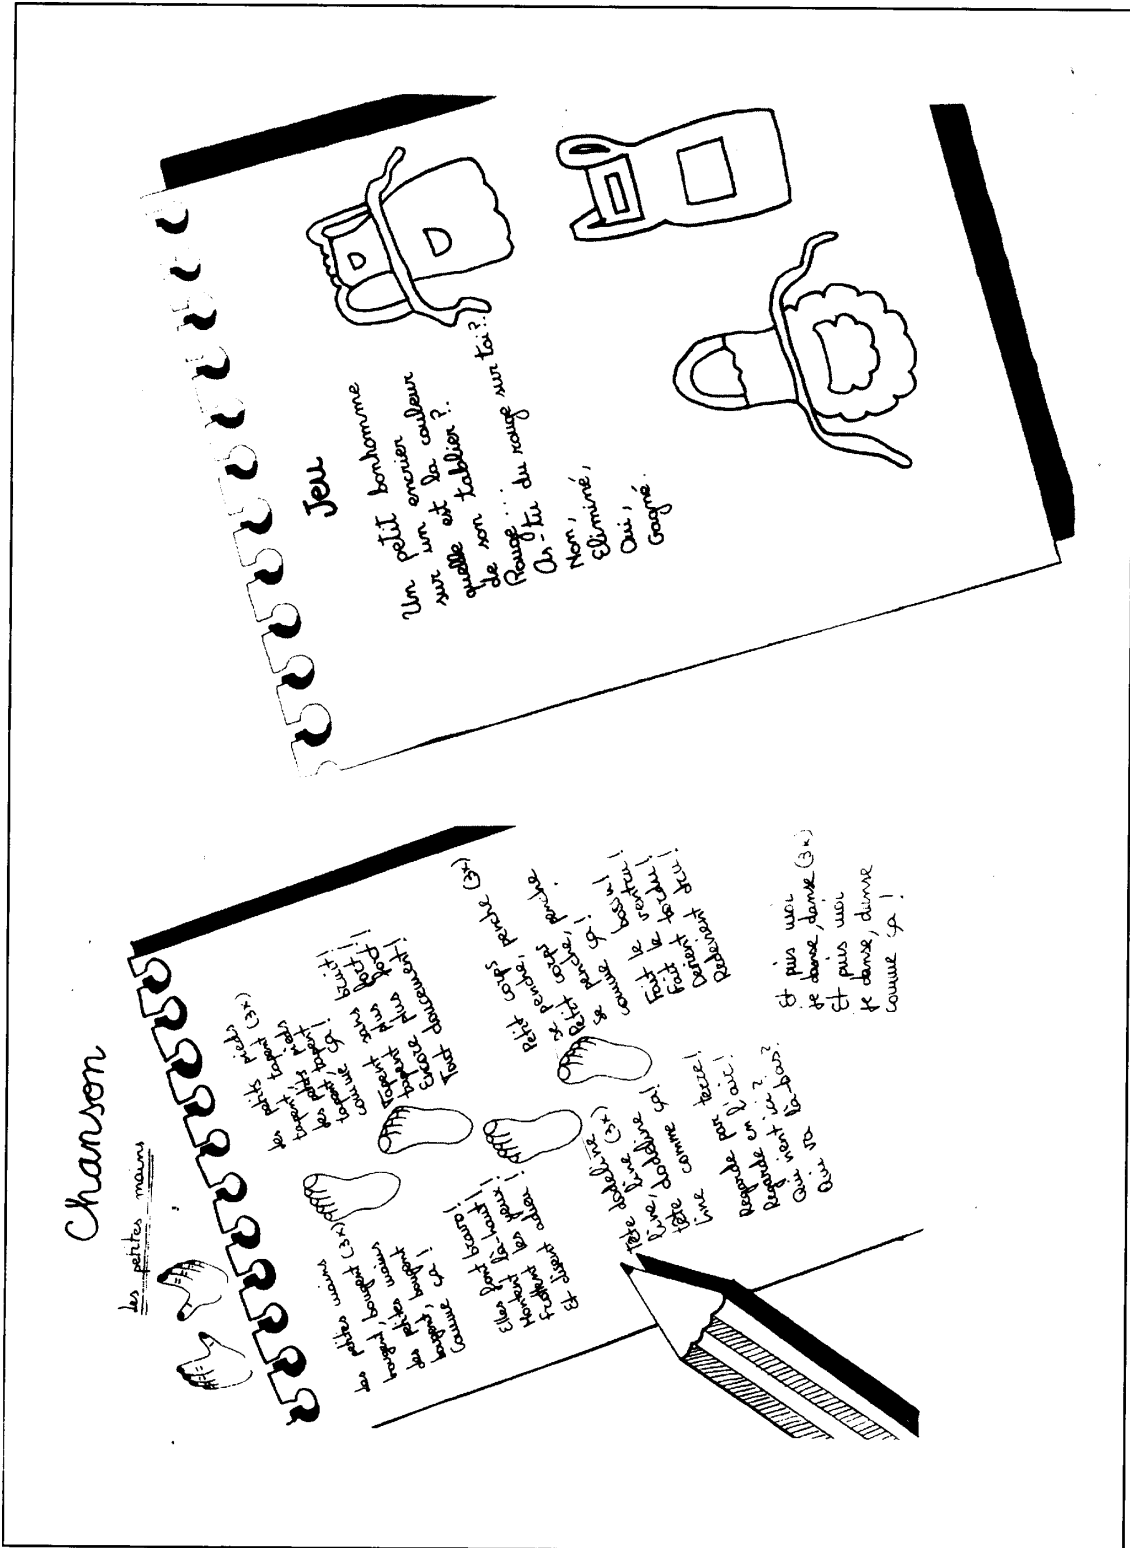 Chanson
Les petites mains
Les petites mains
bougent, bougent (3x)
Les petites mains
bougent, bougent
Comme ça !
Elles font bravo !
Montent là-haut !
Frottent les yeux !
Et disent adieu !
Les petits pieds
tapent, tapent (3x)
Les petits pieds
tapent, tapent
comme ça !
Tapent sans bruit !
tapent plus fort !
Encore plus fort !
Tout doucement !
Tête dodeline
line, line (3x)
Tête dodeline
line comme ça !
Regarde par terre !
Regarde en l'air !
Qui vient ici ?
Qui va là-bas ?
Petit corps
se penche, penche (3x)
Petit corps
se penche, penche
comme ça !
Fait le bossu !
Fait le ventru !
Devient tordu !
Redevient dru !
Et puis moi
je danse, danse (3x)
Et puis moi
je danse, danse
comme ça !
Jeu
Un petit bonhomme
sur un encrier
quelle est la couleur
de son tablier ?.
Rouge ...
As-tu du rouge sur toi ?.
Non,
Eliminé,
Oui,
Gagné.